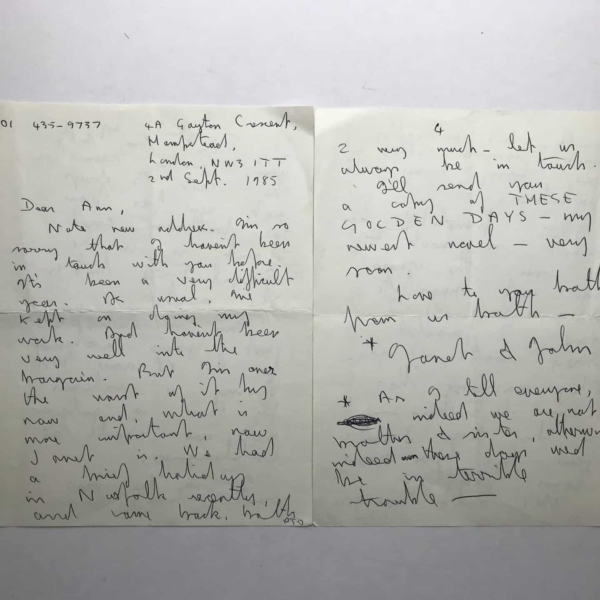 01 435-9737 4A Gayton Crescent,
Hampstead,
London, NW3 1TT
2nd Sept. 1985
Dear Ann,
Note new address. I'm so
sorry that I haven't been
in touch with you before.
It's been a very difficult
year. As usual, I've
kept on doing my
work. And haven't been
very well into the
bargain. But I'm over
the worst of it by
now and, what is
more important, now
Janet is. We had
a brief holiday
in Norfolk recently,
and came back, both
PTO
4
2 very much - let us
always be in touch.
I'll send you
a copy of THESE
GOLDEN DAYS - my
newest novel - very
soon.
Love to you both
from us both -
* Janet & John
* As I tell everyone,
indeed we are not
brother & sister, otherwise
indeed these days we'd
be in terrible
trouble —